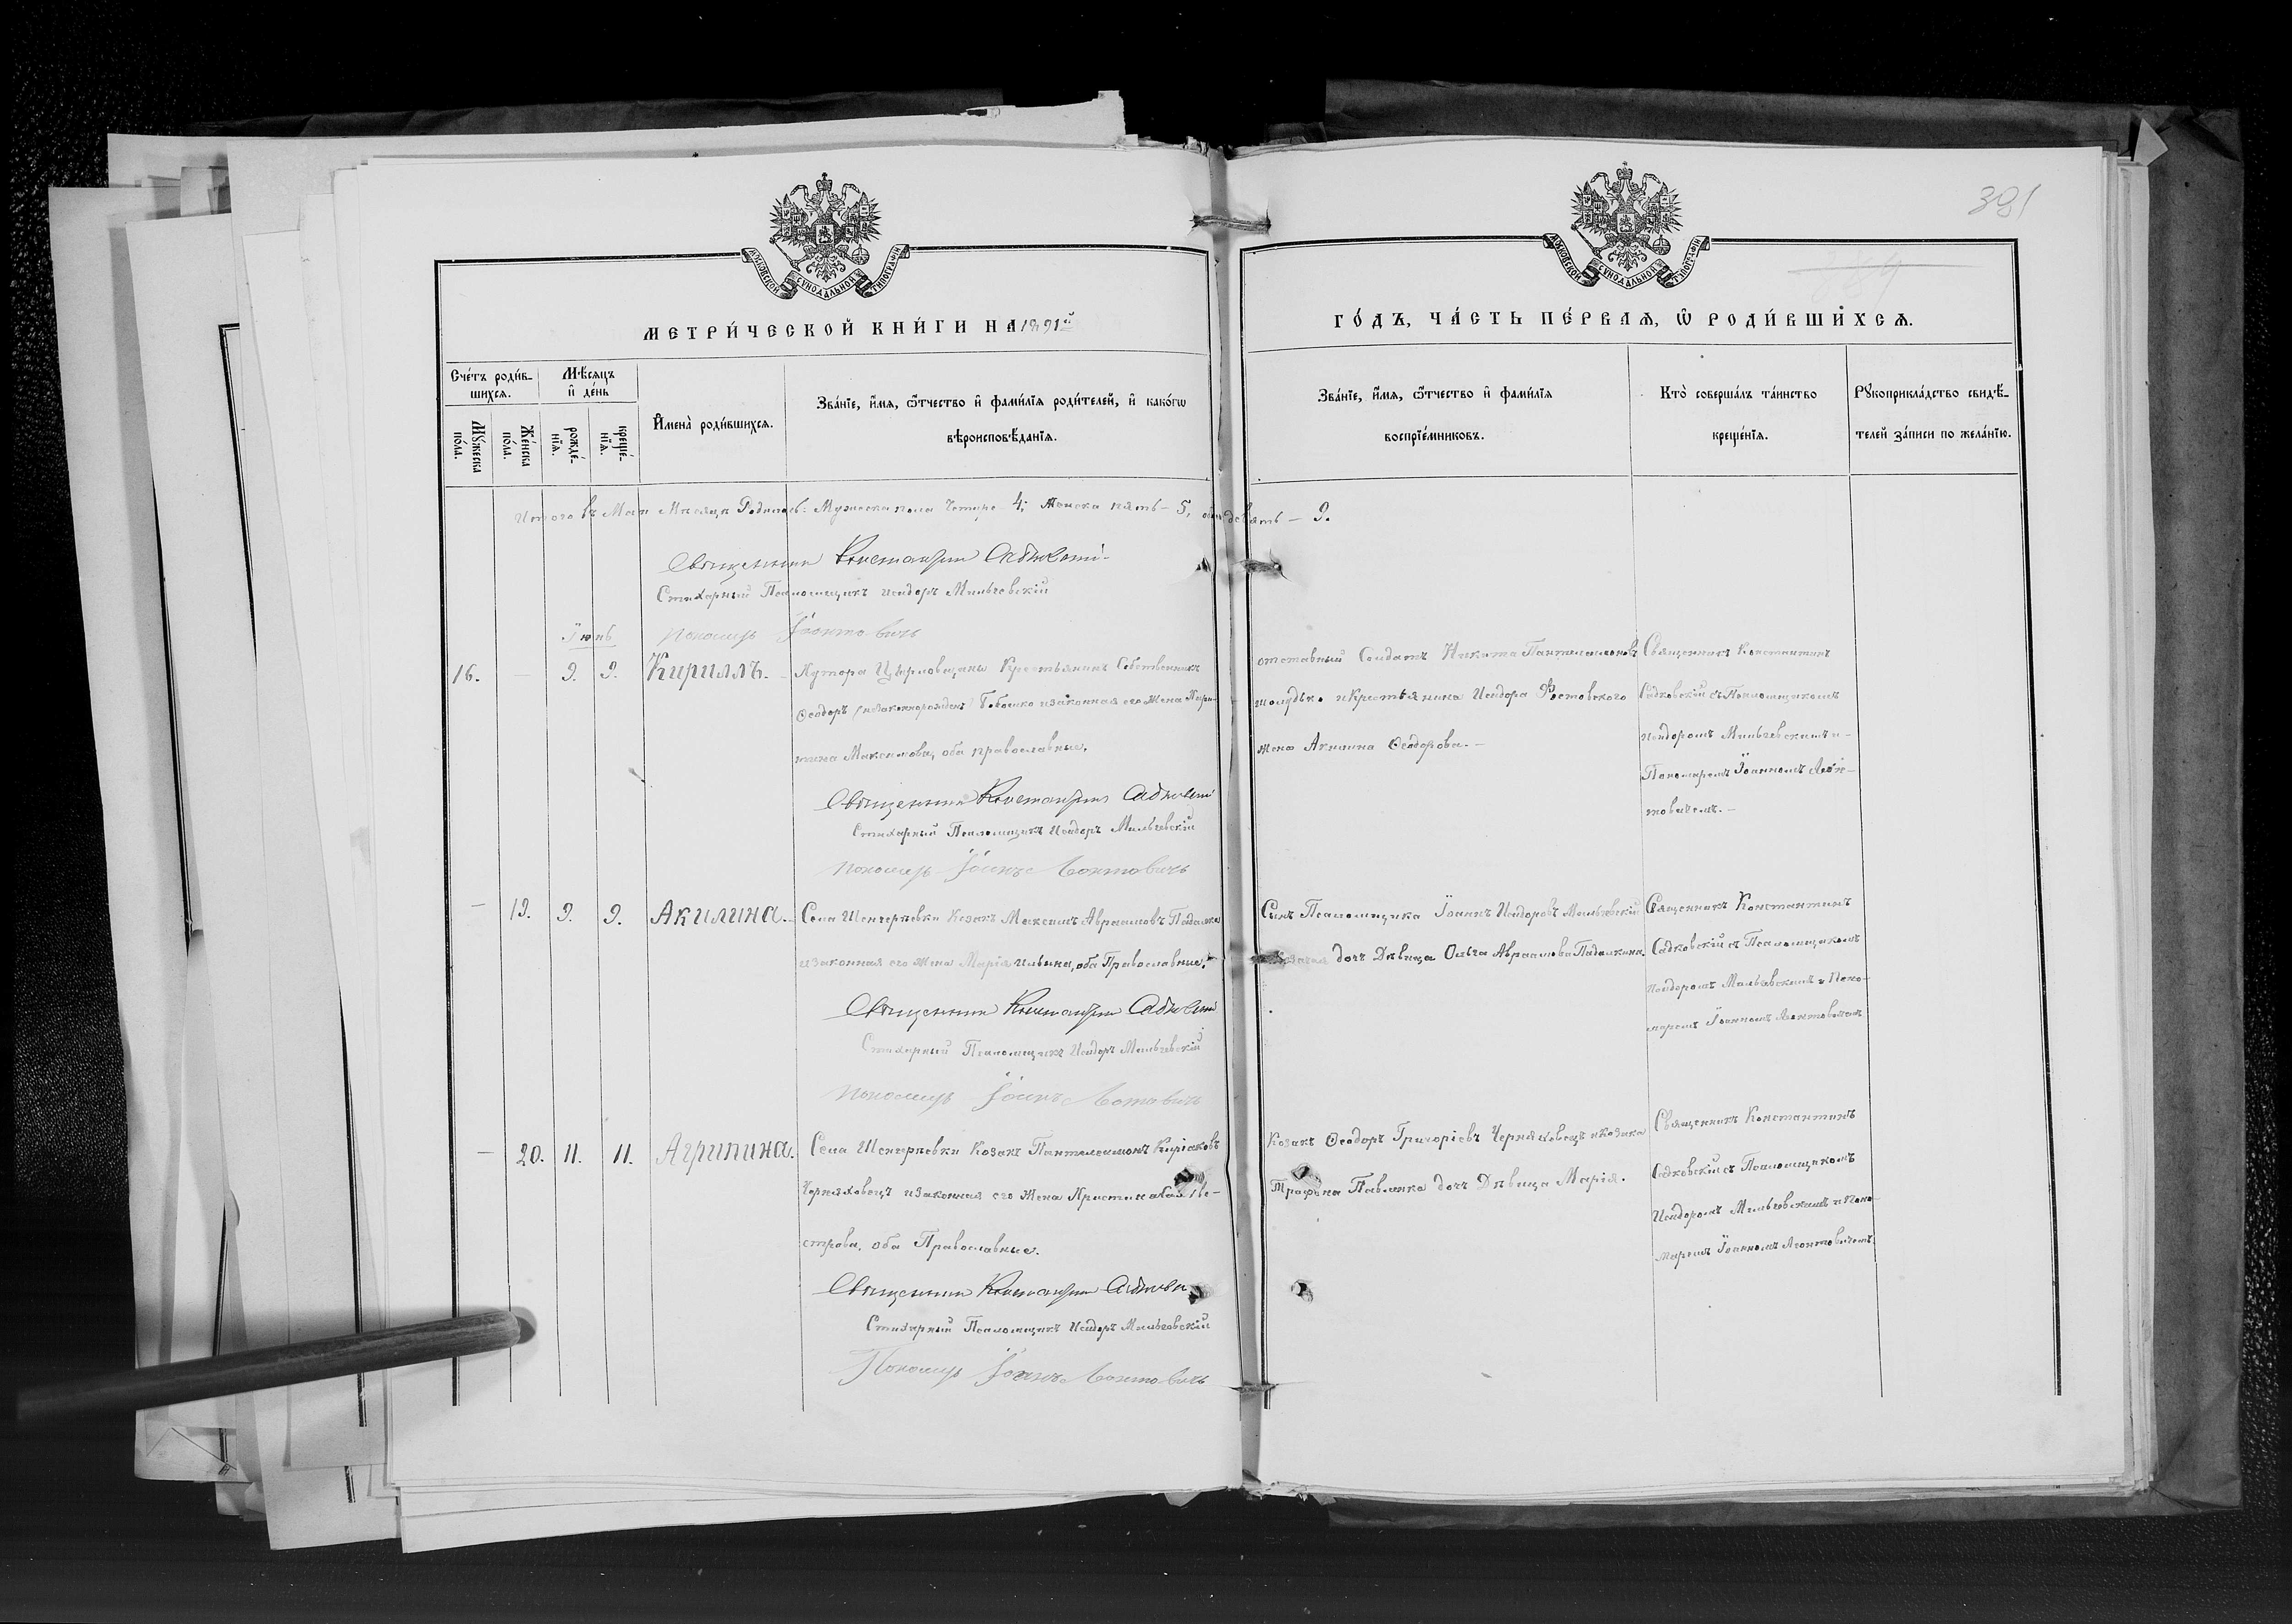 381
МОСКОВСКОЙ СУНОДАЛЬНОЙ ТИПОГРАФІИ
МОСКОВСКОЙ СУНОДАЛЬНОЙ ТИПОГРАФІИ
МЕТРИ́ЧЕСКОЙ КНИ́ГИ НА 1891й
ГО́ДЪ, ЧА́СТЬ ПЕ́РВАѦ, Ѽ РОДИ́ВШИХСѦ.
Сче́тъ роди́вшихсѧ.
Мѣ́сѧцъ и҆ де́нь
Мꙋ́жеска по́ла.
Же́нска по́ла.
рожде́нїѧ.
креще́нїѧ.
И҆мена̀ роди́вшихсѧ.
Зва́нїе, и҆́мѧ, ѻ҆́тчество и҆ фами́лїѧ роди́телей, и҆ како́гѡ
вѣроисповѣ́данїѧ.
Зва́нїе, и҆́мѧ, ѻ҆́тчество и҆ фами́лїѧ
воспрїе́мниковъ.
Кто̀ соверша́лъ та́инство
креще́нїѧ.
Рꙋкоприкла́дство свидѣ́-
телей за́писи по жела́нїю.
Итого въ Маи Мѣсяцѣ Родилось: Мужеска пола Четыре 4; Женска пять – 5, девять – 9.
Священник Константин Садковский
Стихарный Псаломщикъ Исидоръ Мильчевскій
Пономарь Леонтовичъ
Iюнь
16. – 9. 9. Кириллъ. Хутора Крестьянинъ Собственникъ
Ѳеодоръ (незаконнорожден) Бобошко и законная его Жена Хари-
тина Максимова, оба православные.
отставный Солдатъ Никита Пантелеимоновъ
Шолудько и Крестьянина Исидора Ростовского
жена Акилина Ѳеодорова. –
Священникъ Константинъ
Садковскій съ Псаломщикомъ
Исидоромъ Мильчевскимъ и –
Пономаремъ Iоанномъ Леон-
товичемъ. –
Священник Константин Садковский
Стихарный Псаломщикъ Исидоръ Мильчевскій
Пономарь Iоаннъ Леонтовичъ
– 19. 9. 9. Акилина. Села Шенгеръевки Козакъ Максимъ Авраамовъ Падалка
и законная его Жена Марія Ильина, оба Православные.
Сынъ Псаломщика Iоаннъ Исидоровъ Мильчевскій
дочь Дѣвица Ольга Авраамова Падалкина.
Священникъ Константинъ
Садковскій съ Псаломщикомъ
Исидоромъ Мильчевскимъ и Поно-
маремъ Iоанномъ Леонтовичемъ
Священник Константин Садковский
Стихарный Псаломщикъ Исидоръ Мильчевскій
Пономарь Iоаннъ Леонтовичъ
– 20. 11. 11. Агрипина. Села Шенгеръевки Козакъ Пантелеимонъ Киріаковъ
Черняховецъ и законная его Жена Христина
строва, оба Православные.
Козакъ Ѳеодоръ Григоріевъ Черняховецъ и Козака
Трофима Павленка дочь Дѣвица Марія.
Священникъ Константинъ
Садковскій съ Псаломщикомъ
Исидоромъ Мильчевскимъ и Поно-
маремъ Iоанномъ Леонтовичемъ
Священник Константин Садковский
Стихарный Псаломщикъ Исидоръ Мильчевскій
Пономарь Iоаннъ Леонтовичъ